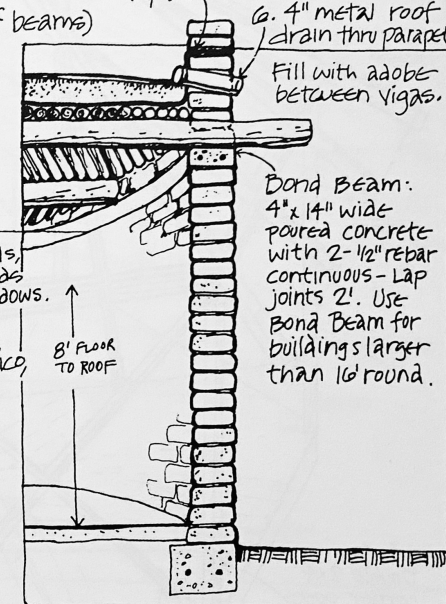 beams)
6. 4" metal roof
drain thru parapet
Fill with adobe
between vigas.
Bond Beam:
4" x 14" wide
poured concrete
with 2-1/2" rebar
continuous - Lap
joints 2'. Use
Bond Beam for
buildings larger
than 16' round.
8' FLOOR
TO ROOF